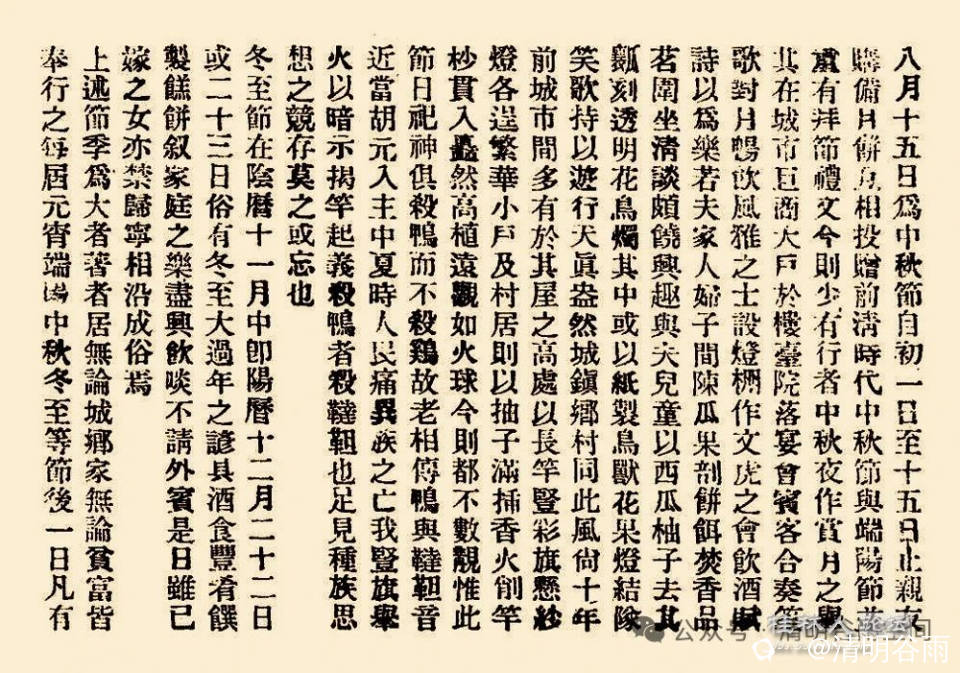 八月十五日爲中秋節自初一日至十五日止親友
購備月餅互相投贈前清時代中秋節與端陽節並
重有拜節禮文今則少有行者中秋夜作賞月之舉
其在城市巨商大戶於樓臺院落宴會賓客合奏笙
歌對月暢飲風雅之士設燈棚作文虎之會飲酒賦
詩以爲樂若夫家人婦子間陳瓜果剖餅餌焚香品
茗圍坐清談頗饒興趣與夫兒童以西瓜柚子去其
瓤刻透明花鳥燭其中或以紙製鳥獸花果燈結隊
笑歌持以遊行天眞盎然城鎭鄕村同此風尙十年
前城市間多有於其屋之高處以長竿豎彩旗懸紗
燈各逞繁華小戶及村居則以抽子滿揷香火削竿
杪貫入矗然高植遠觀如火球今則都不數覩惟此
節日祀神俱殺鴨而不殺鷄故老相傳鴨與韃靼音
近當胡元入主中夏時人民痛異族之亡我豎旗舉
火以暗示揭竿起義殺鴨者殺韃靼也足見種族思
想之競存莫之或忘也
冬至節在陰曆十一月中卽陽曆十二月二十二日
或二十三日俗有冬至大過年之諺具酒食豐肴饌
製餻餅叙家庭之樂盡興飲啖不請外賓是日雖已
嫁之女亦禁歸寧相沿成俗焉
上述節季爲大者著者居無論城鄕家無論貧富皆
奉行之每屆元宵端陽中秋冬至等節後一日凡有
公众号·清明谷雨
@清明谷雨